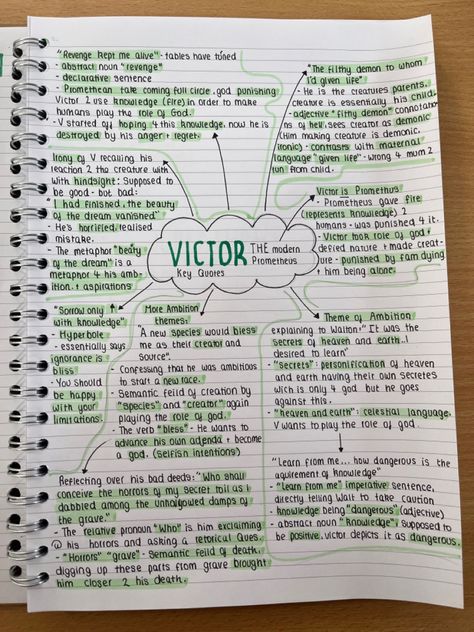 "Revenge kept me alive" - tables have tuned
- abstract noun "revenge"
- declarative sentence
- Promethean take coming full circle. god punishing
Victor 2 use knowledge (fire) in order to make
humans play the role of God.
- V started off hoping 4 this knowledge, now he is
destroyed by his anger + regret.
"The filthy demon to whom
I'd given life"
- He is the creatures parents,
creature is essentially his child.
- adjective "filthy demon" connotations
of hell. sees creature as demonic
(Him making creature is demonic.
ironic) - contrasts with maternal
language "given life" - wrong 4 mum 2
run from child.
Irony of V recalling his
reaction 2 the creature with
with hindsight: Supposed to
be good - but bad:
"I had finished, the beauty
of the dream vanished"
- He's horrified/realised
mistake.
- The metaphor "beauty
of the dream" is a
metaphor 4 his amb-
ition + aspirations
VICTOR THE modern
Prometheus
Key Quotes
Victor is Promethus
- Prometheus gave fire
(represents knowledge) 2
humans - was punished 4 it.
- Victor took role of god +
defied nature + made creat-
ure - punished by fam dying
+ him being alone.
"Sorrow only ↑
with knowledge"
- Hyperbole
- essentially says
ignorance is
bliss
- You should
be happy
with your
limitations.
More Ambition
themes:
"A new species would bless
me as their creator and
source".
- Confessing that he was ambitious
to start a new race.
- Semantic feild of creation by
"species" and "creator" again
playing the role of god.
- The verb "bless" - He wants to
advance his own adenda + become
a god. (Selfish intentions)
Theme of Ambition
explaining to Walton:" It was the
secrets of heaven and earth..I
desired to learn"
- "secrets": personification of heaven
and earth having their own secretes
wich is only 4 god but he goes
against this.
- "heaven and earth": celestial language.
V wants to play the role of god.
"Learn from me... how dangerous is the
aquirement of knowledge"
- "Learn from me" imperative sentence,
directly telling Walt to take caution
- knowledge being "dangerous" (adjective)
- abstract noun "knowledge", supposed to
be positive. victor depicts it as dangerous.
Reflecting over his bad deeds:"Who shall
conceive the horrors of my secret toil as I
dabbled among the unhallowed damps of
the grave."
- The relative pronoun "Who" is him exclaiming
@ his horrors and asking a retorical Ques.
- "Horrors" "grave" - Semantic feild of death.
digging up these parts from grave brought
him closer 2 his death.